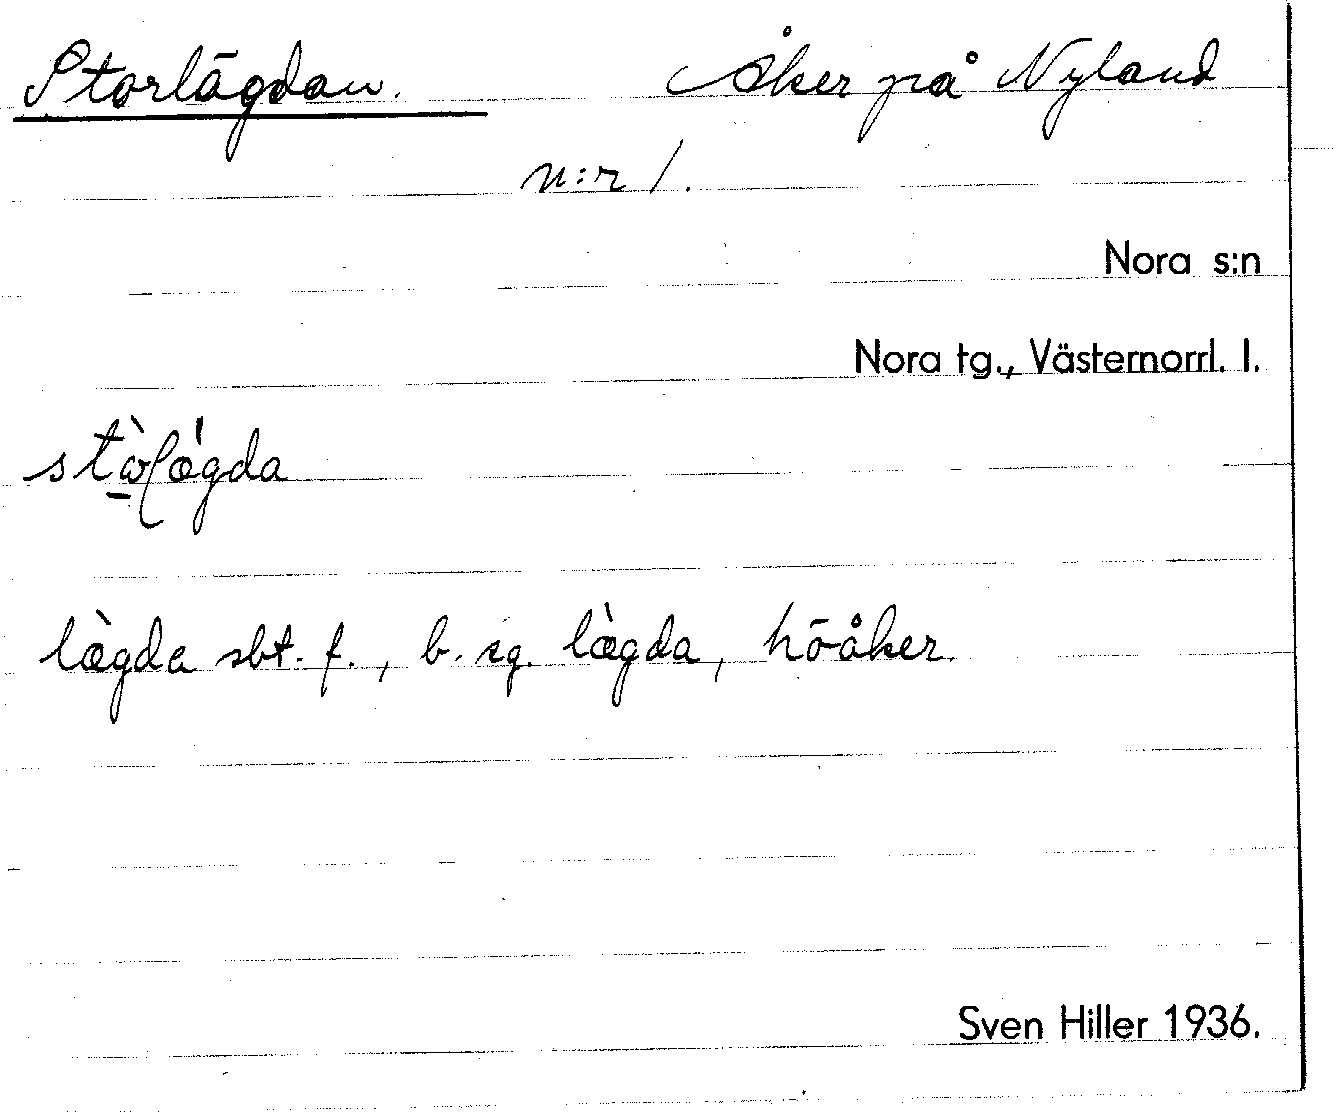 Storlägdan. Åker på Nyland
n:r 1.
Nora s:n
Nora tg., Västernorrl. l.
lægda sbt. f., b. sg. lægda, höåker.
Sven Hiller 1936.